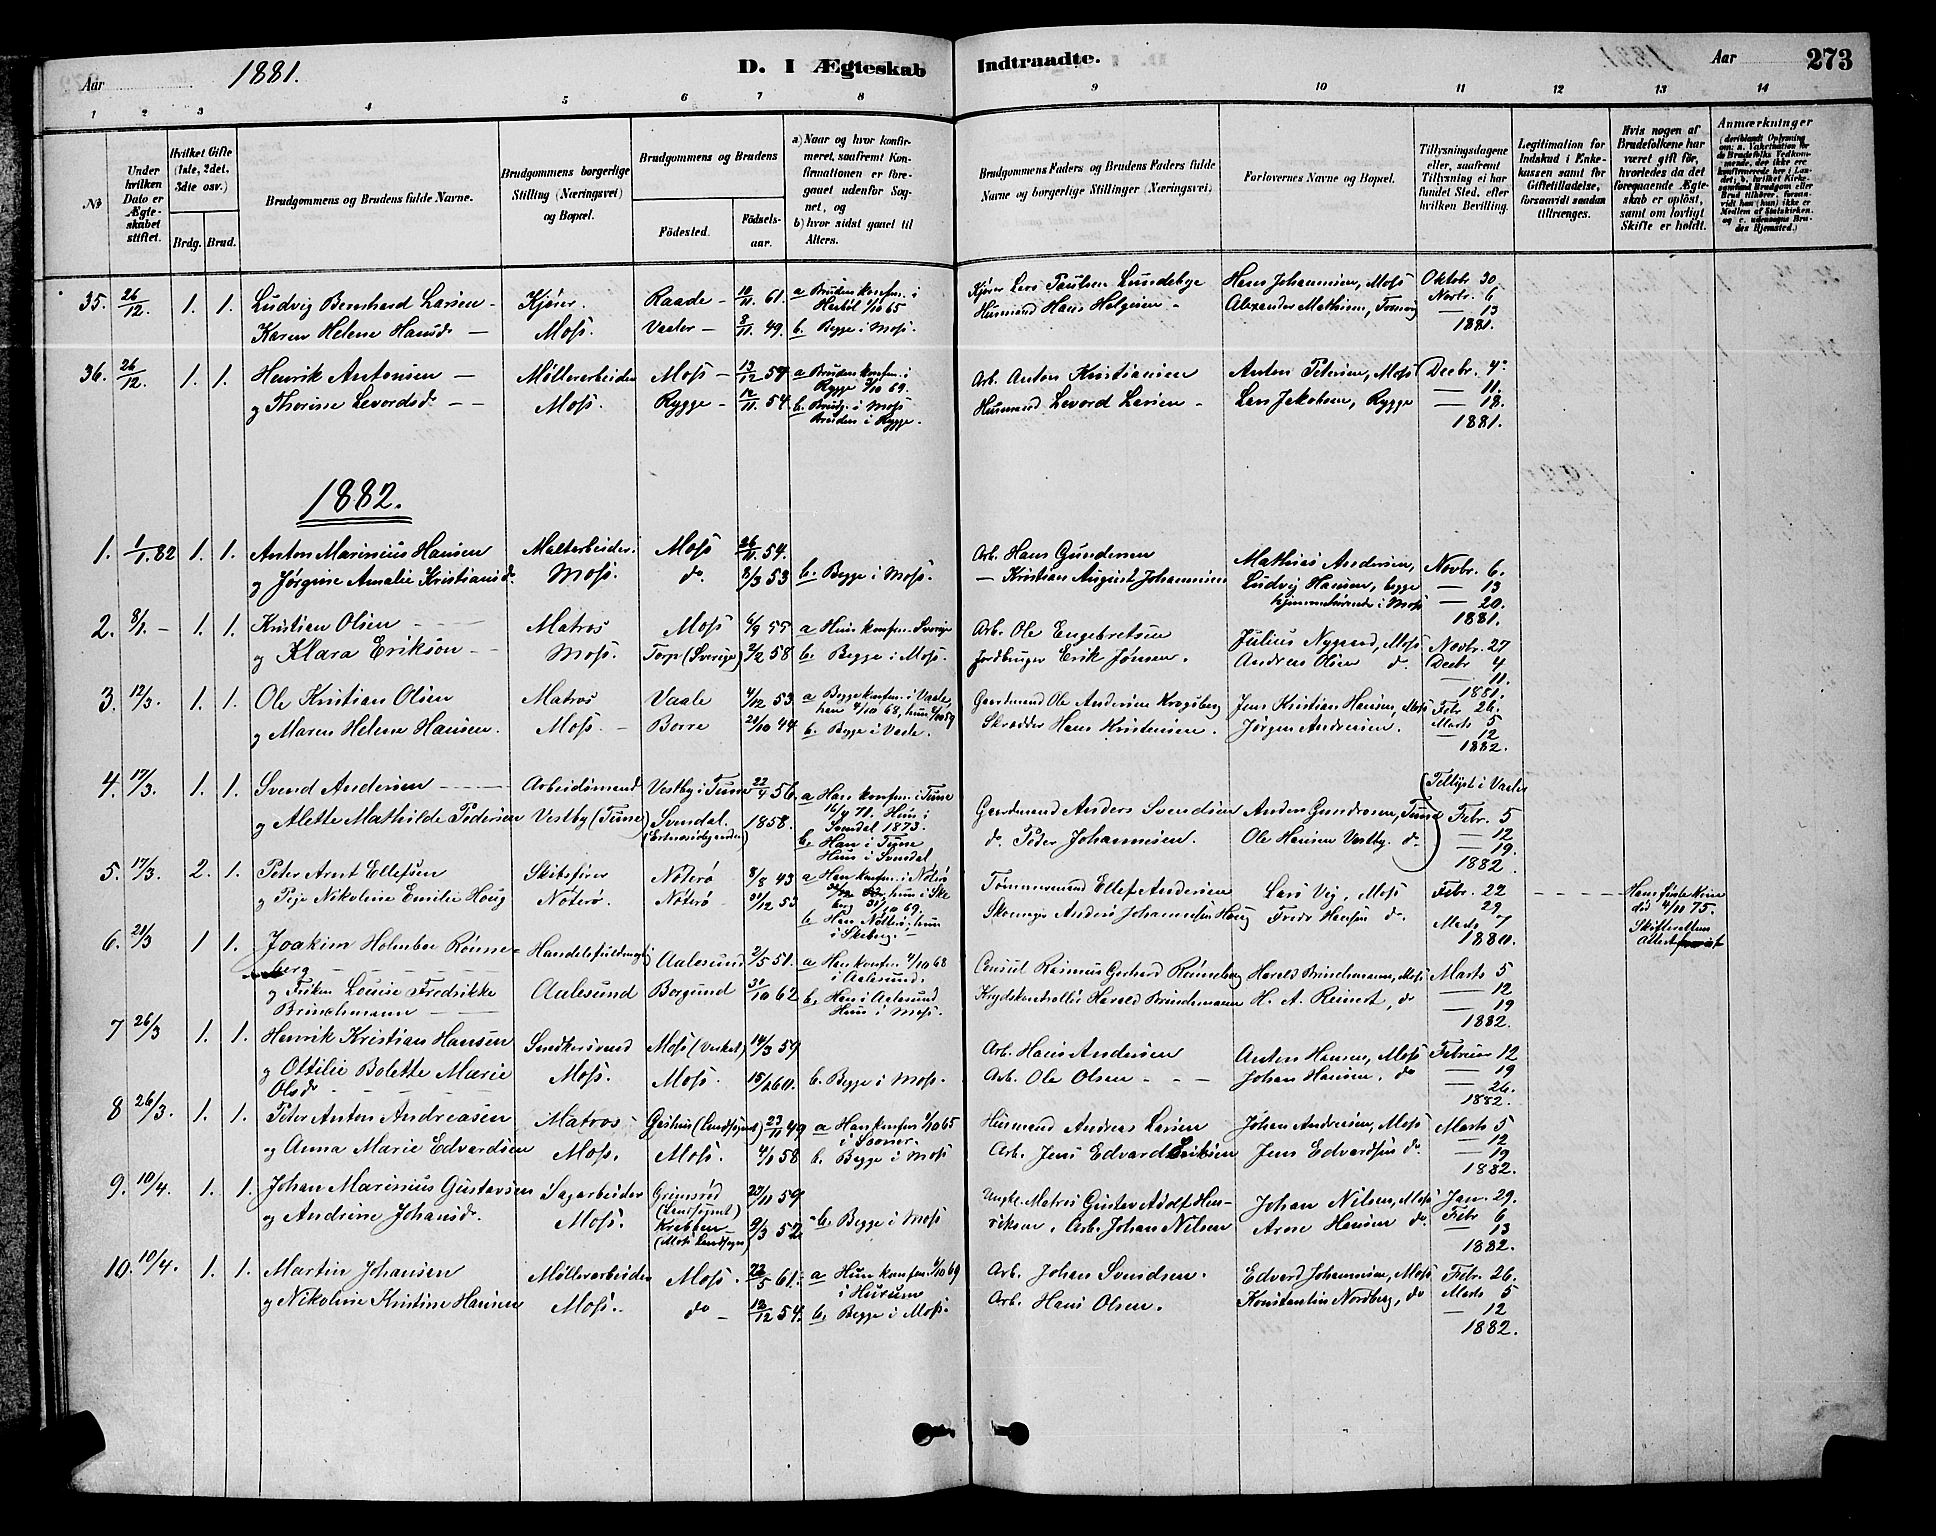 Aar 1881. D. I Ægteskab Indtraadte. 1881 Aar 273
1 2 3 4 5 6 7 8 9 10 11 12 13 14
No
Under hvilken Dato er Ægteskabet stiftet.
Hvilket Gifte (1ste, 2det, 3die osv.)
Brdg. Brud.
Brudgommens og Brudens fulde Navne.
Brudgommens borgerlige Stilling (Næringsvei) og Bopæl.
Brudgommens og Brudens
Fødested. Fødselsaar.
a) Naar og hvor konfirmeret, saafremt Konfirmationen er foregaaet udenfor Sognet, og
b) hvor sidst gaaet til Alters.
Brudgommens Faders og Brudens Faders fulde Navne og borgerlige Stillinger (Næringsvei)
Forlovernes Navne og Bopæl.
Tillysningsdagene eller, saafremt Tillysning ei har fundet Sted, efter hvilken Bevilling.
Legitimation for Indskud i Enkekassen samt for Giftetilladelse, forsaavidt saadan tiltrænges.
Hvis nogen af Brudefolkene har været gift før, hvorledes da det foregaaende Ægteskab er opløst, samt om lovligt Skifte er holdt.
Anmærkninger
35. 26/12. 1. 1. Ludvig Bernhard Larsen - Kjører. Raade - 10/11 61. a Bruden konfm. i Kjører Lars Paulsen Lundebye Hans Johannesen, Moss Oktobr 30
Karen Helene Hansdr - Moss. Vaaler - 8/11 49. Husmand Hans Helgesen - Alexander Mathisen, Novbr. 6
b. Begge i Moss. - 13
1881.
36. 26/12. 1. 1. Henrik Antonsen - Møllerarbeider Moss - 13/12 54 a Bruden konfm. i Rygge 3/10 69. Arb. Anton Kristiansen Anton Petersen, Moss Decbr. 4.
og Thorine Levordsdr - - Moss. Rygge - 12/11 54 b. Brudg. i Moss Bruden i Rygge. Husmand Levord Larsen - Lars Jakobsen, Rygge - 11.
- 18.
1881.
1882.
1. 1/1. 82 1. 1. Anton Marinius Hansen Malterbeider. Moss 26/11. 54. Arb. Hans Gundersen Mathias Andersen, Novbr. 6.
og Jørgine Amalie Kristiansdr Moss. do. 8/3 53 b. Begge i Moss. - Kristian August Johannesen Ludvig Hansen, begge - 13
hjemmehørende i Moss - 20.
1881.
2. 8/1. - 1. 1. Kristian Olsen - Matros Moss 6/9 55 a Hun konfm. Sverige Arb. Ole Engebretsen Julius Nygaard, Moss Novbr. 27
og Klara Erikson - - Moss. Torp (Sverige) 2/2 58 b. Begge i Moss. Jordbruger Erik Jønsen. Andreas Olsen do. Decbr 4
- 11.
1881.
3. 12/3. 1. 1. Ole Kristian Olsen Matros Vaale 4/12 53 a Begge konfm. i Vaale, han 4/10 68, hun 2/10 59 Gaardmand Ole Andersen Krogsberg Jens Kristian Hansen, Moss Febr 26.
og Maren Helene Hansen. Moss. - Borre 21/10 44 b. Begge i Vaale. Skrædder Hans Kristensen. Jørgen Andresen. Marts 5
- 12
1882.
4. 17/3. 1. 1. Svend Andersen - - - - Arbeidsmand Vestby i Tune 22/4 56. a Han konfm. i Tune 16/4 71. Hun i Svendal 1873. Gaardmand Anders Svendsen Anders Gundersen, Tune (Tillyst i Vaaler
og Alette Mathilde Pedersen Vestby (Tune) Svendal. 1858. b. Han i Tune Hun i Svendal do. Peder Johannesen. Ole Hansen Vestby. do. Febr. 5
- 12
- 19.
1882.
5. 17/3. 2. 1. Peter Arnt Ellefsen Skibsfører Nøterø 8/8 43 a Han konfm. i Nøterø hun i Skeberg 31/10 69. Tømmermand Ellef Andersen Lars Vej, Moss Febr. 22 - - - - Hans første Kone
og Peje Nikoline Emilie Houg Nøterø. Nøterø 31/12 53 b. Han Nøtterø, hun i Skeberg. - Skomager Anders Johannesen Houg Fredr Hansen do. - 29 død 4/11 75.
Marts 7 Skifterettens
1880. Attest
6. 21/3 1 1. Joakim Holmboe Rønneberg Handelsfuldmægtig Aalesund 2/5 51. a Han konfm. 4/10 68 i Aalesund. Consul Rasmus Gerhard Rønneberg Harald Brinchmann, Moss Marts 5
og Frøken Louise Fredrikke Brinchmann - - Aalesund Borgund 30/10 62 b. Han i Aalesund Hun i Moss. Krydskontrollør Harald Brinchmann H. A. Reinert, do - 12
- 19
1882.
7 26/3 1. 1. Henrik Kristian Hansen Snedkersvend Moss (Verket) 14/3 59 Arb. Hans Andersen Anton Hansen, Moss Februar 12
og Ottilie Bolette Marie Olsdr - - Moss. Moss. 15/1 60. b. Begge i Moss. Arb. Ole Olsen - - - Johan Hansen. do - 19
- 26.
1882.
8 26/3. 1. 1. Peter Anton Andreasen Matros (Landsogn) 23/11 49 a Han konfm 1/10 65 i Saaner. Husmand Andreas Larsen Johan Andresen, Moss Marts 5
og Anna Marie Edvardsen Moss. Moss. 4/1 58 b. Begge i Moss Arb. Jens Edvard Eriksen Jens Edvardsen do. - 12
- 19
1882.
9. 10/4. 1. 1. Johan Marinius Gustavsen Sagarbeider Grimsrød (Landsognet) 27/11 59 Ungkl. Matros Gustav Adolf Henriksen, Johan Nilsen, Moss Jan. 29.
og Andrine Johansdr. Moss. Krabben (Moss Landsogn) 9/3 52 b. Begge i Moss Arb. Johan Nilsen Arne Hansen do. Febr 6
- 13
1882.
10. 10/4. 1. 1. Martin Johansen Møllerarbeider Moss. 22/5 61. a Hun konfm. 4/10 69 i Hurum Arb. Johan Svendsen. Edvard Johannesen, Moss Febr. 26.
og Nikoline Kristine Hansen Moss. do - 12/12 54. b. Begge i Moss. Arb. Hans Olsen. Konstantin Nordberg, do Marts 5
- 12
1882.